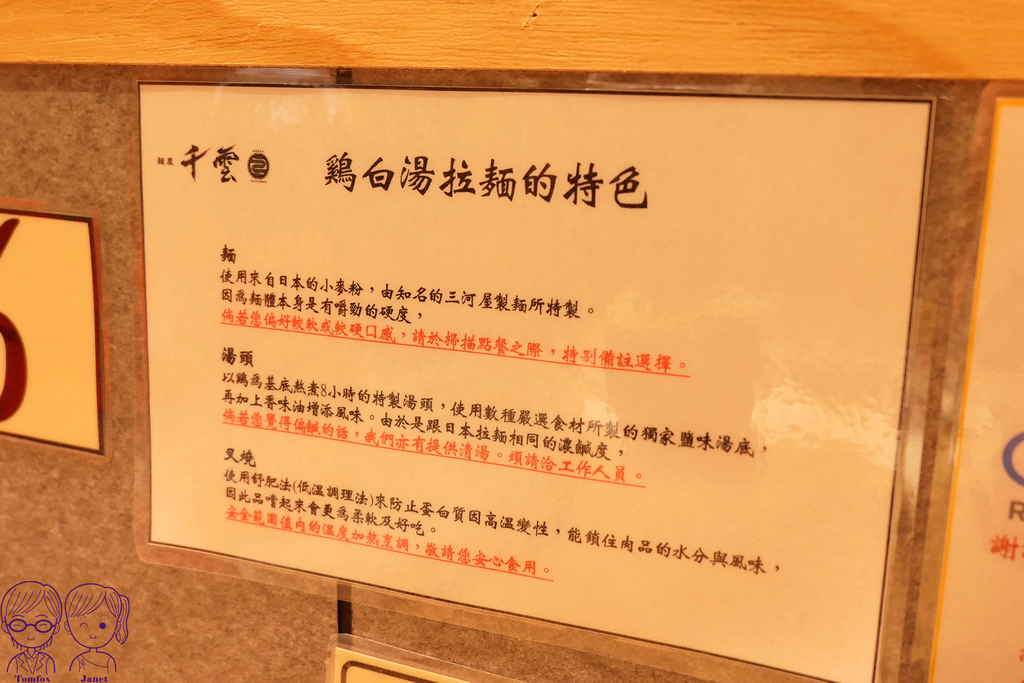 麵屋 千雲
鷄白湯拉麵的特色
麵
使用來自日本的小麥粉，由知名的三河屋製麵所特製。
因為麵體本身是有嚼勁的硬度，
倘若您偏好較軟或較硬口感，請於掃描點餐之際，特別備註選擇。
湯頭
以鷄為基底熬煮8小時的特製湯頭，使用數種嚴選食材所製的獨家鹽味湯底，
再加上香味油增添風味。由於是跟日本拉麵相同的濃鹹度，
倘若您覺得偏鹹的話，我們亦有提供清湯。煩請洽工作人員。
叉燒
使用舒肥法(低溫調理法)來防止蛋白質因高溫變性，能鎖住肉品的水分與風味，
因此品嚐起來會更為柔軟及好吃。
安全範圍值內的溫度加熱烹調，敬請您安心食用。
R
謝
Tomfox
Janet